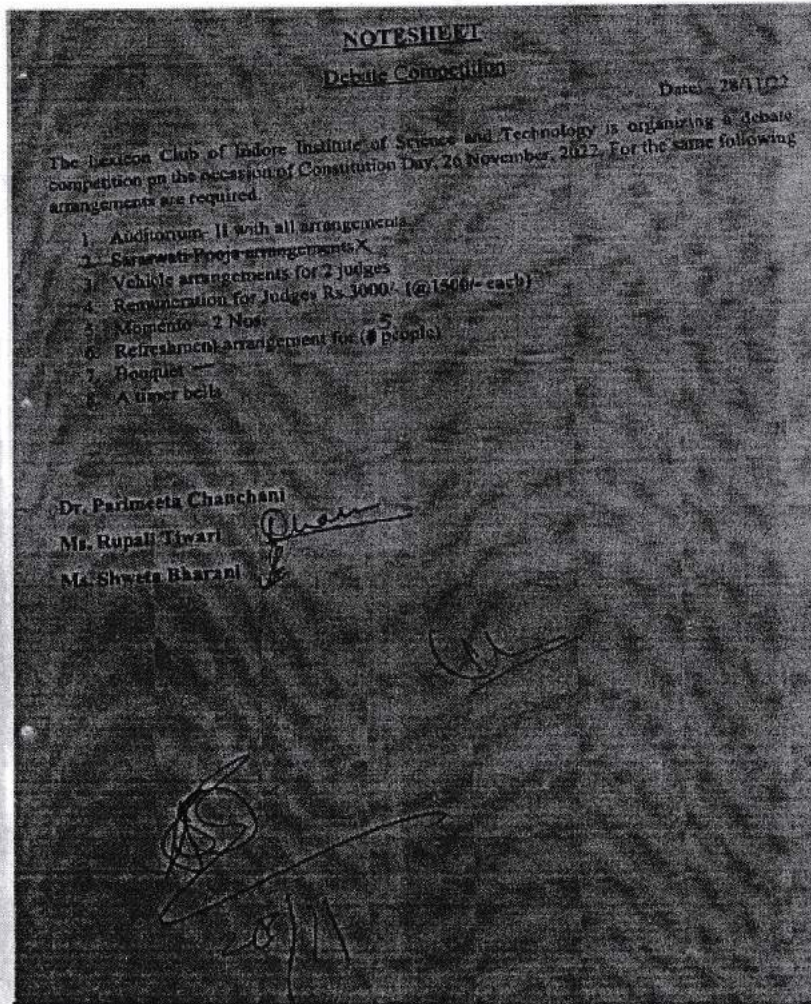 NOTESHEET
Debate Competition
Date: - 28/11/22
The Lexicon Club of Indore Institute of Science and Technology is organizing a debate
competition on the occasion of Constitution Day, 26 November, 2022. For the same following
arrangements are required.
1. Auditorium- II with all arrangements
2. Saraswati Pooja arrangements X
3. Vehicle arrangements for 2 judges
4. Remuneration for Judges Rs.3000/- (@1500/- each)
5. Momento – 2 Nos.
6. Refreshment arrangement for ( 5 people)
7. Bouquet —
8. A timer bells
Dr. Parimeeta Chanchani
Ms. Rupali Tiwari
Ms. Shweta Bharani